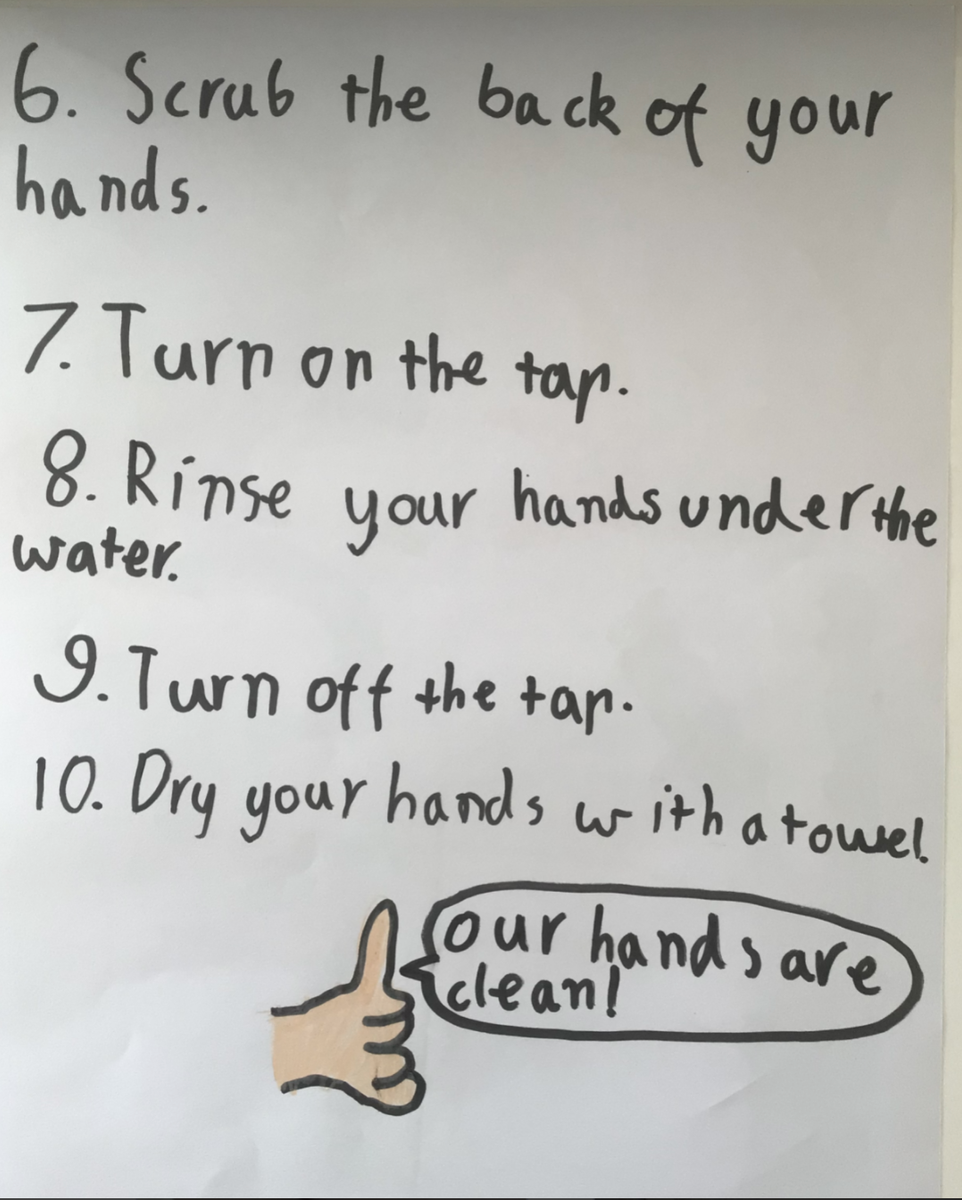 6. Scrub the back of your
hands.
7. Turn on the tap.
8. Rinse your hands under the
water.
9. Turn off the tap.
10. Dry your hands with a towel.
our hands are
clean!